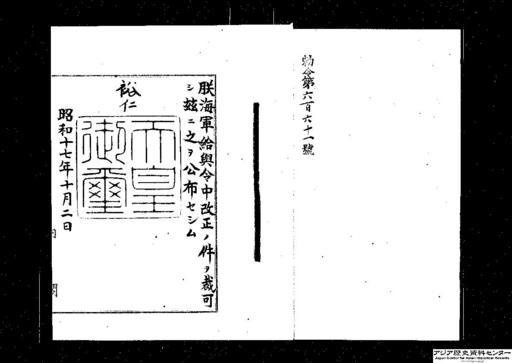 勅令第六百六十一號
朕海軍給與令中改正ノ件ヲ裁可
シ玆ニ之ヲ公布セシム
裕仁
天皇
御璽
昭和十七年十月二日
内
閣
アジア歴史資料センター
Japan Center for Asian Historical Records